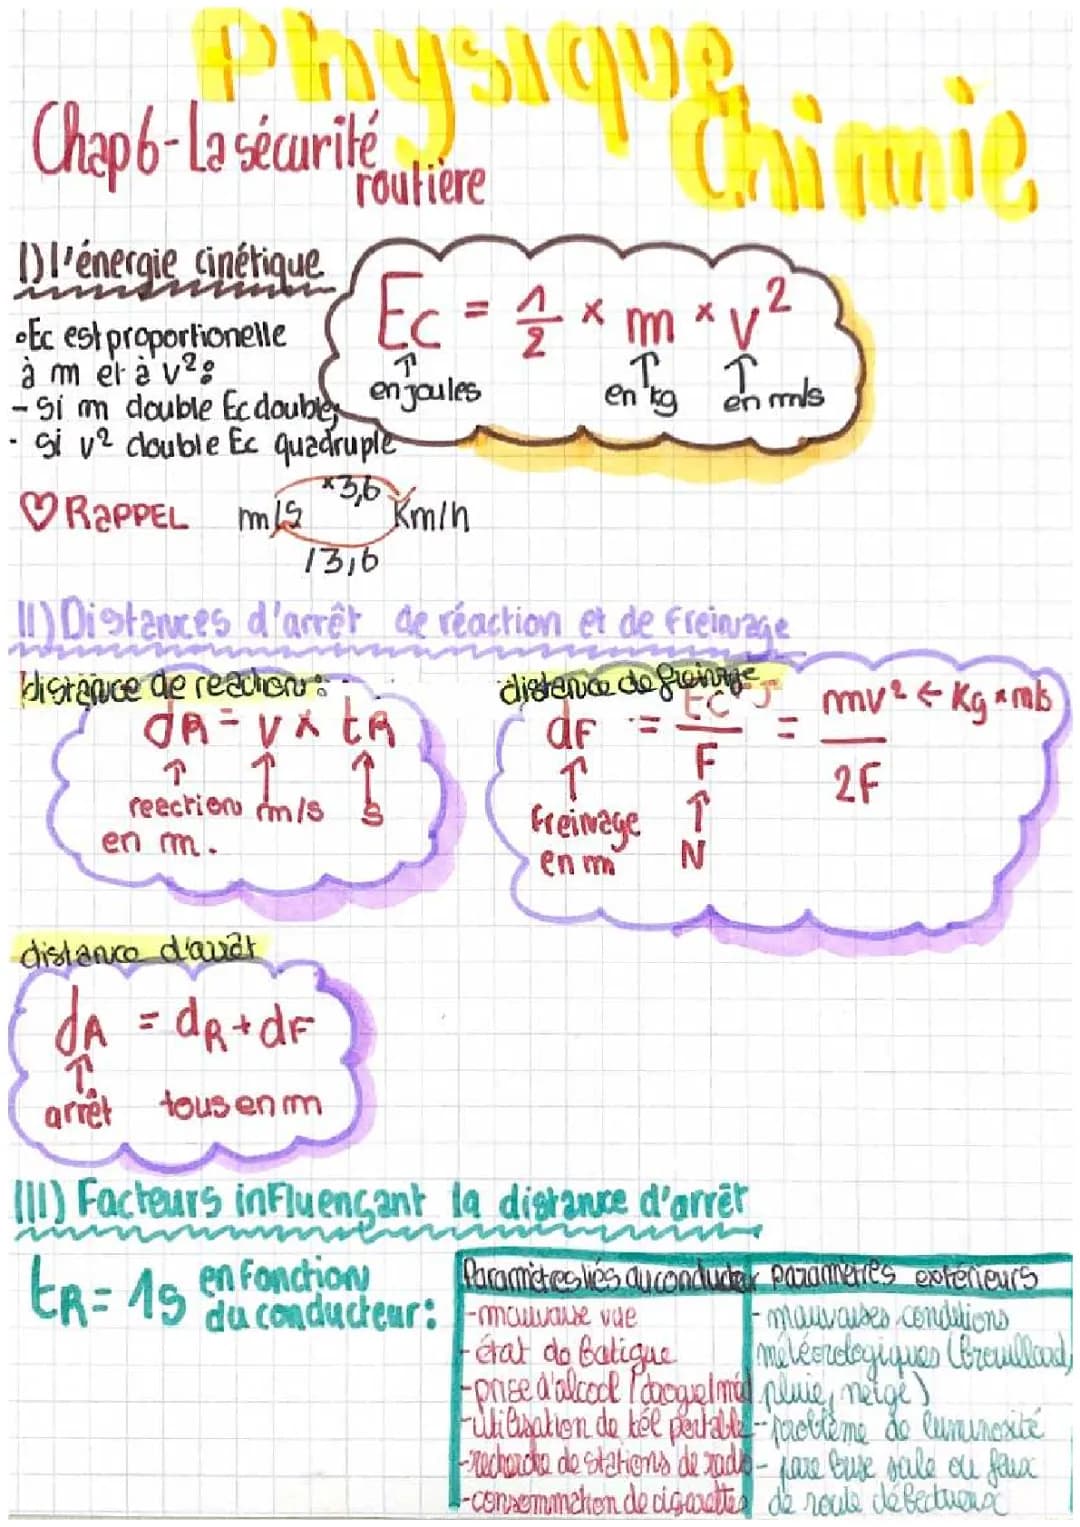 Physique
Chimie
Chap 6 - La sécurité
routière
I) l'énergie cinétique
Ec = 1/2 × m × v²
↑ en joules
↑ en kg
↑ en m/s
• Ec est proportionelle
à m et à v² :
- Si m double Ec double,
- si v² double Ec quadruple
♡ RAPPEL
m/s ×3,6 Km/h
/3,6
II) Distances d'arrêt de réaction et de freinage
distance de reaction :
dR = v × tR
↑ reection ↑ m/s ↑ s
en m.
distance de freinage
dF = Ec J / F = mv² ← Kg × m/s / 2F
↑ ↑
freinage N
en m
distance d'arrêt
dA = dR + dF
↑
arrêt tous en m
III) Facteurs influençant la distance d'arrêt
tR = 1s en fonction
du conducteur :
Paramètres liés au conducteur
- mauvaise vue
- état de fatigue
- prise d'alcool / drogue / méd
- utilisation de tél portable
- recherche de stations de radio
- consommation de cigarettes
paramètres extérieurs
- mauvaises conditions
météorologiques (brouillard,
pluie, neige)
- problème de luminosité
- pare buse sale ou feux
de route défectueux